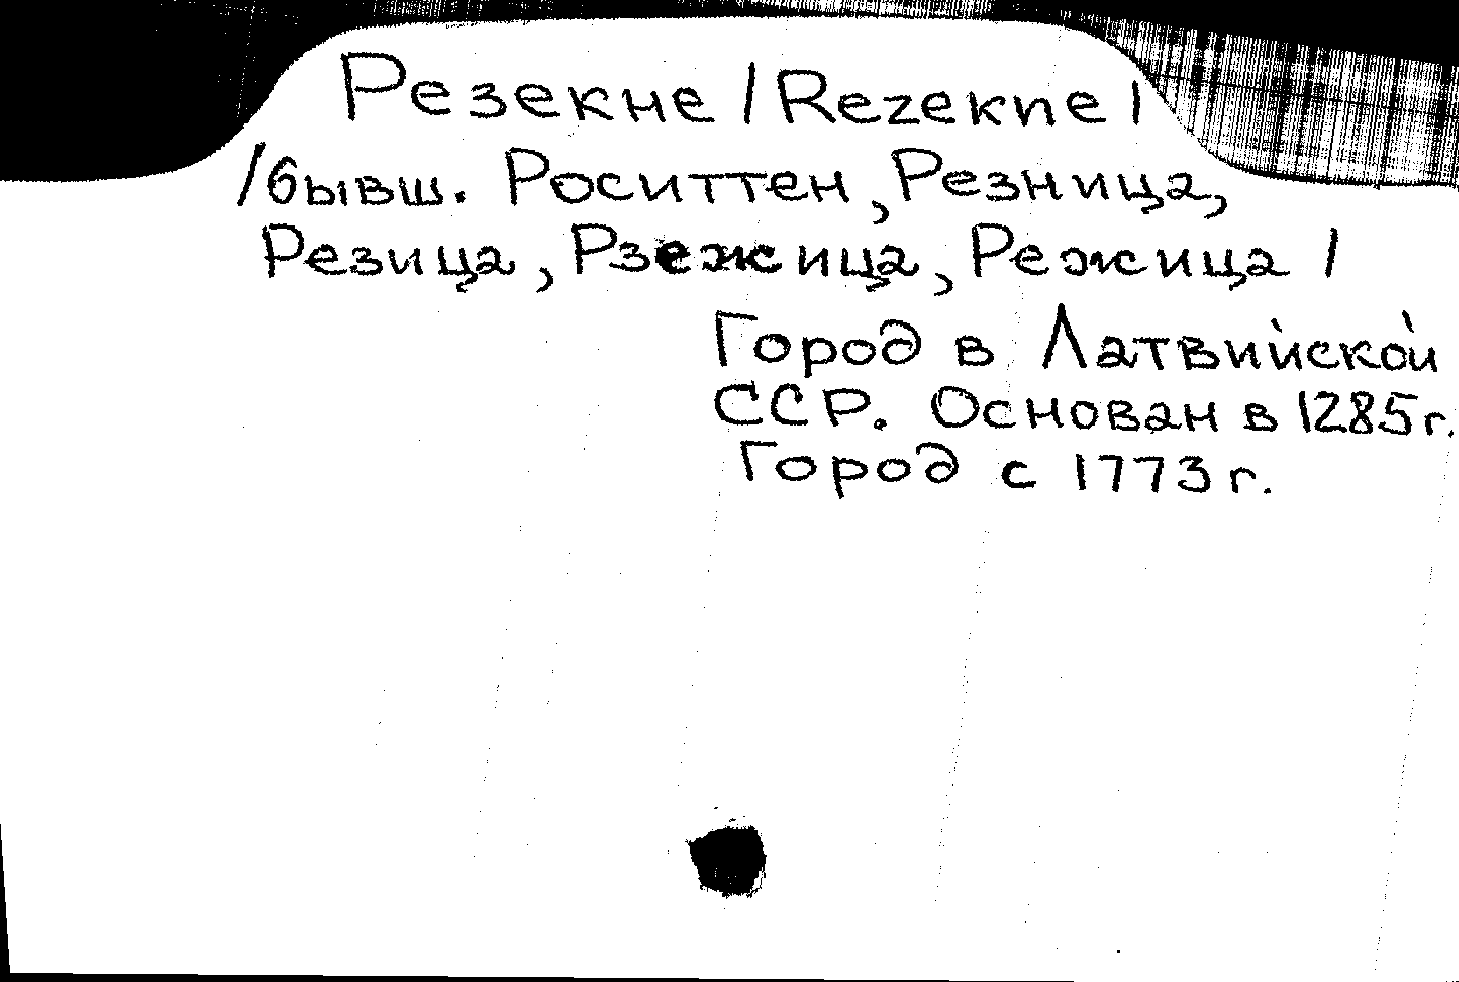 Резекне /Rezekne/
/бывш. Роситтен, Резница,
Резица, Рзежица, Режица/
Город в Латвийской
ССР. Основан в 1285г.
Город с 1773г.